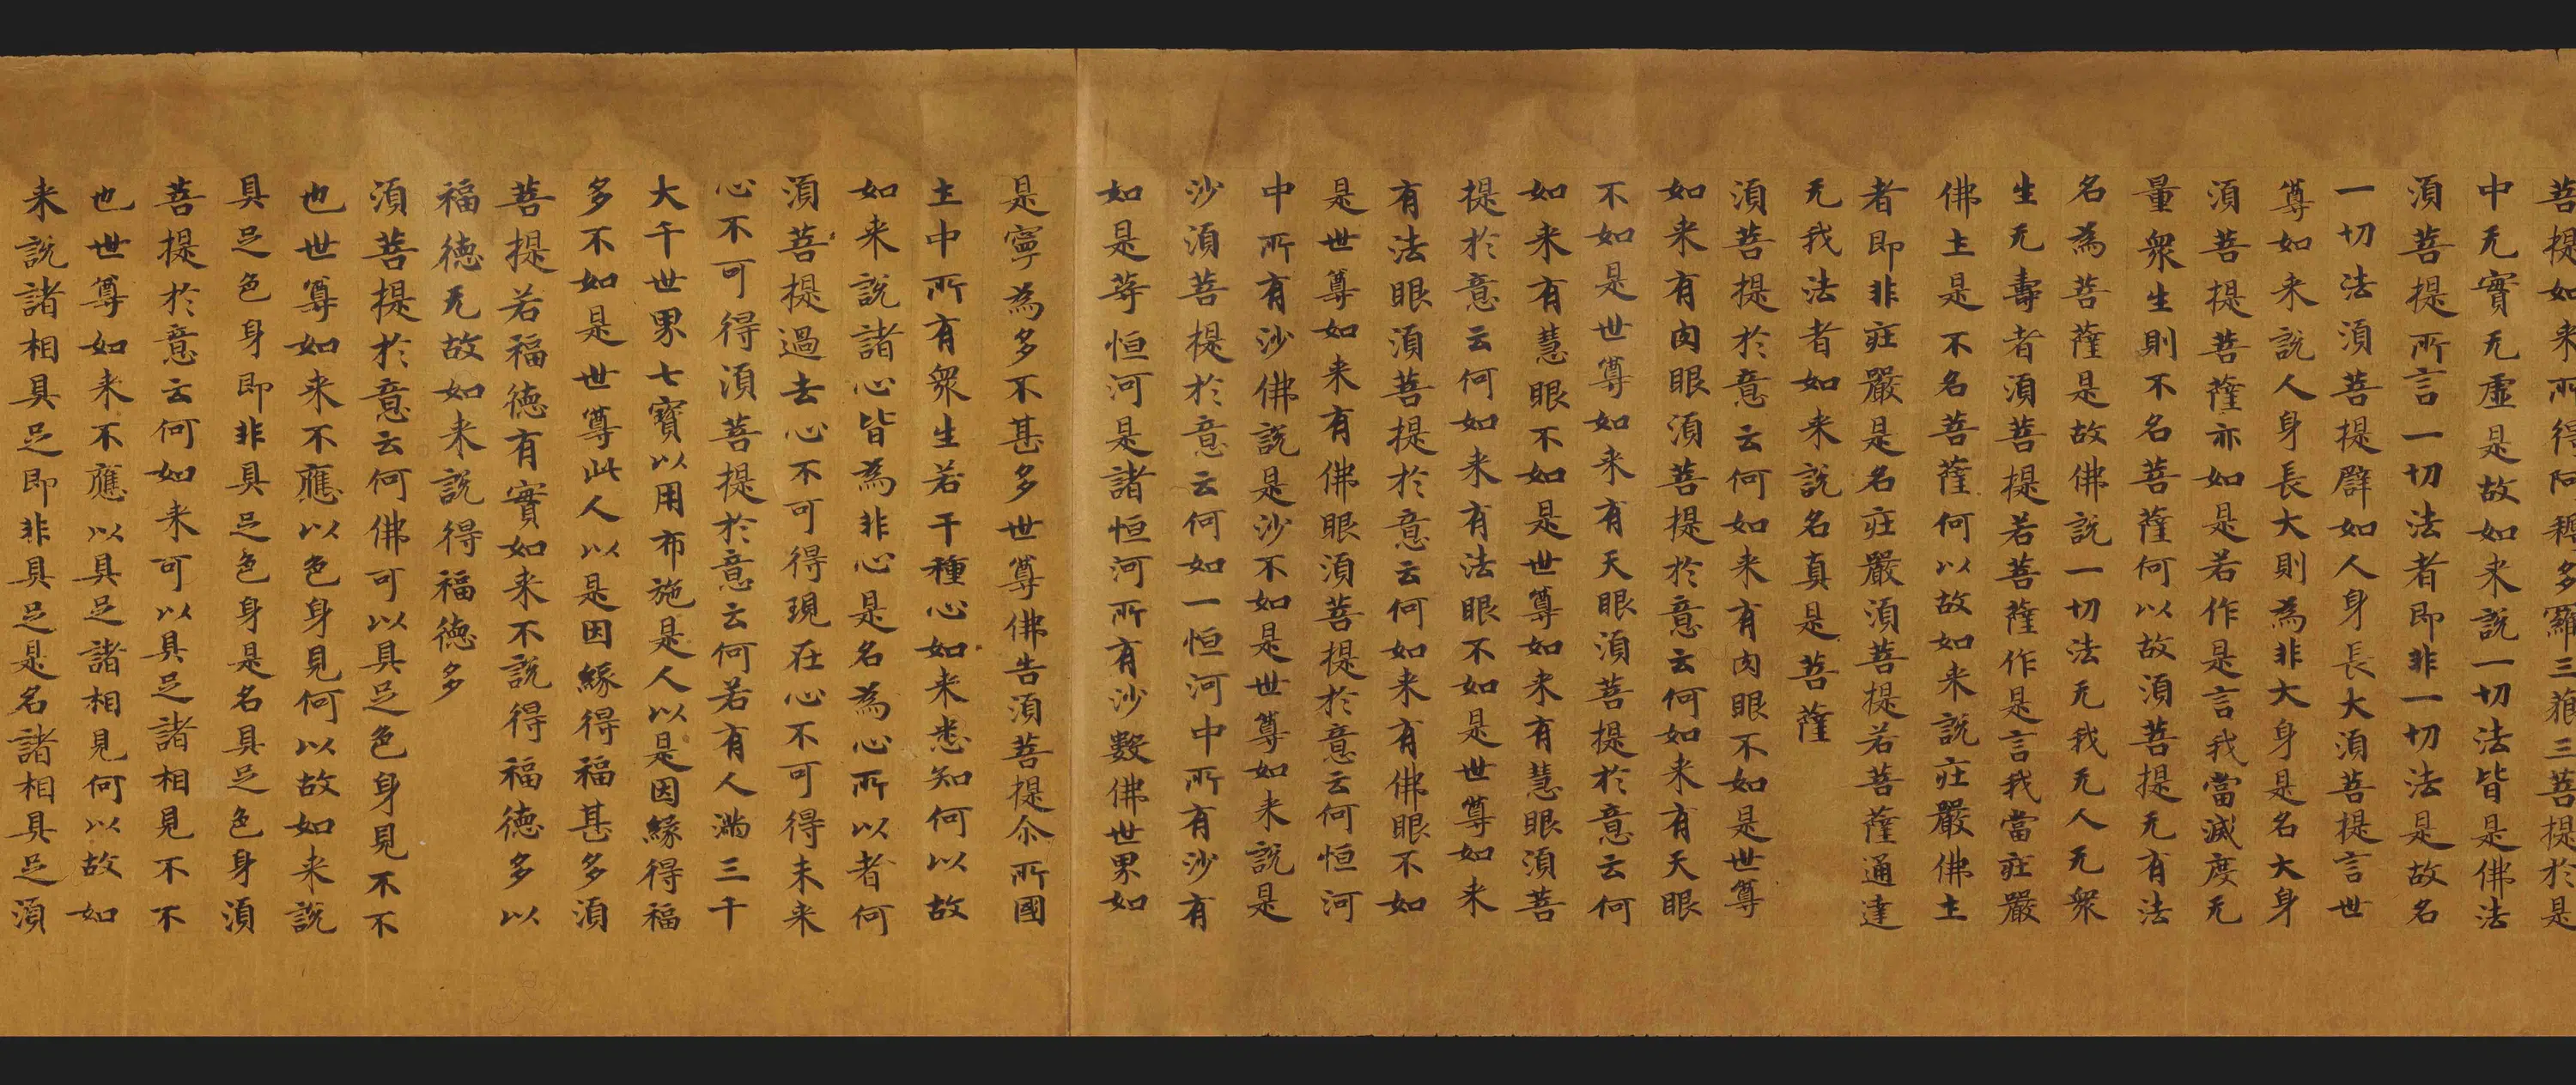 菩提如来所得阿耨多羅三藐三菩提於是
中无實无虛是故如来說一切法皆是佛法
須菩提所言一切法者即非一切法是故名
一切法須菩提辟如人身長大須菩提言世
尊如来說人身長大則為非大身是名大身
須菩提菩薩亦如是若作是言我當滅度无
量衆生則不名菩薩何以故須菩提无有法
名為菩薩是故佛說一切法无我无人无衆
生无壽者須菩提若菩薩作是言我當莊嚴
佛土是不名菩薩何以故如来說莊嚴佛土
者即非莊嚴是名莊嚴須菩提若菩薩通達
无我法者如来說名真是菩薩
須菩提於意云何如来有肉眼不如是世尊
如来有肉眼須菩提於意云何如来有天眼
不如是世尊如来有天眼須菩提於意云何
如来有慧眼不如是世尊如来有慧眼須菩
提於意云何如来有法眼不如是世尊如来
有法眼須菩提於意云何如来有佛眼不如
是世尊如来有佛眼須菩提於意云何恒河
中所有沙佛說是沙不如是世尊如来說是
沙須菩提於意云何如一恒河中所有沙有
如是等恒河是諸恒河所有沙數佛世界如
是寧為多不甚多世尊佛告須菩提尒所國
土中所有衆生若干種心如来悉知何以故
如来說諸心皆為非心是名為心所以者何
須菩提過去心不可得現在心不可得未来
心不可得須菩提於意云何若有人滿三千
大千世界七寶以用布施是人以是因緣得福
多不如是世尊此人以是因緣得福甚多須
菩提若福德有實如来不說得福德多以
福德无故如来說得福德多
須菩提於意云何佛可以具足色身見不不
也世尊如来不應以色身見何以故如来說
具足色身即非具足色身是名具足色身須
菩提於意云何如来可以具足諸相見不不
也世尊如来不應以具足諸相見何以故如
来說諸相具足即非具足是名諸相具足須